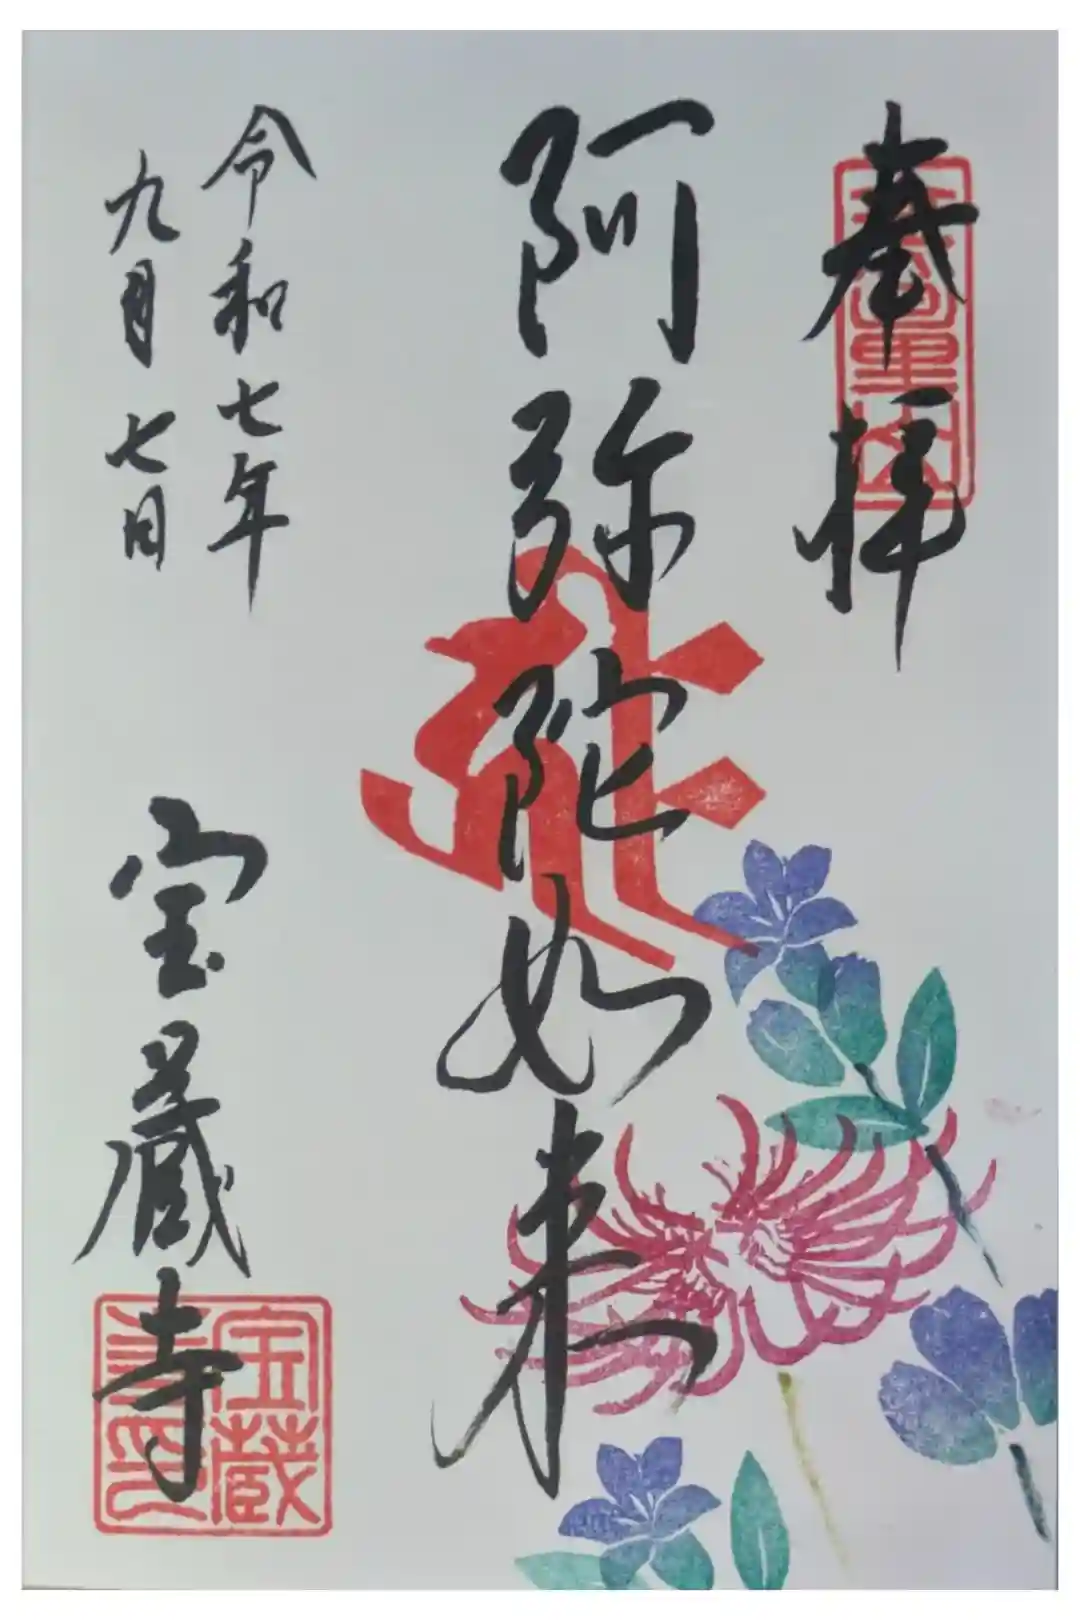 奉拝
阿弥陀如来
令和七年
九月七日
宝蔵寺
宝蔵
寺印